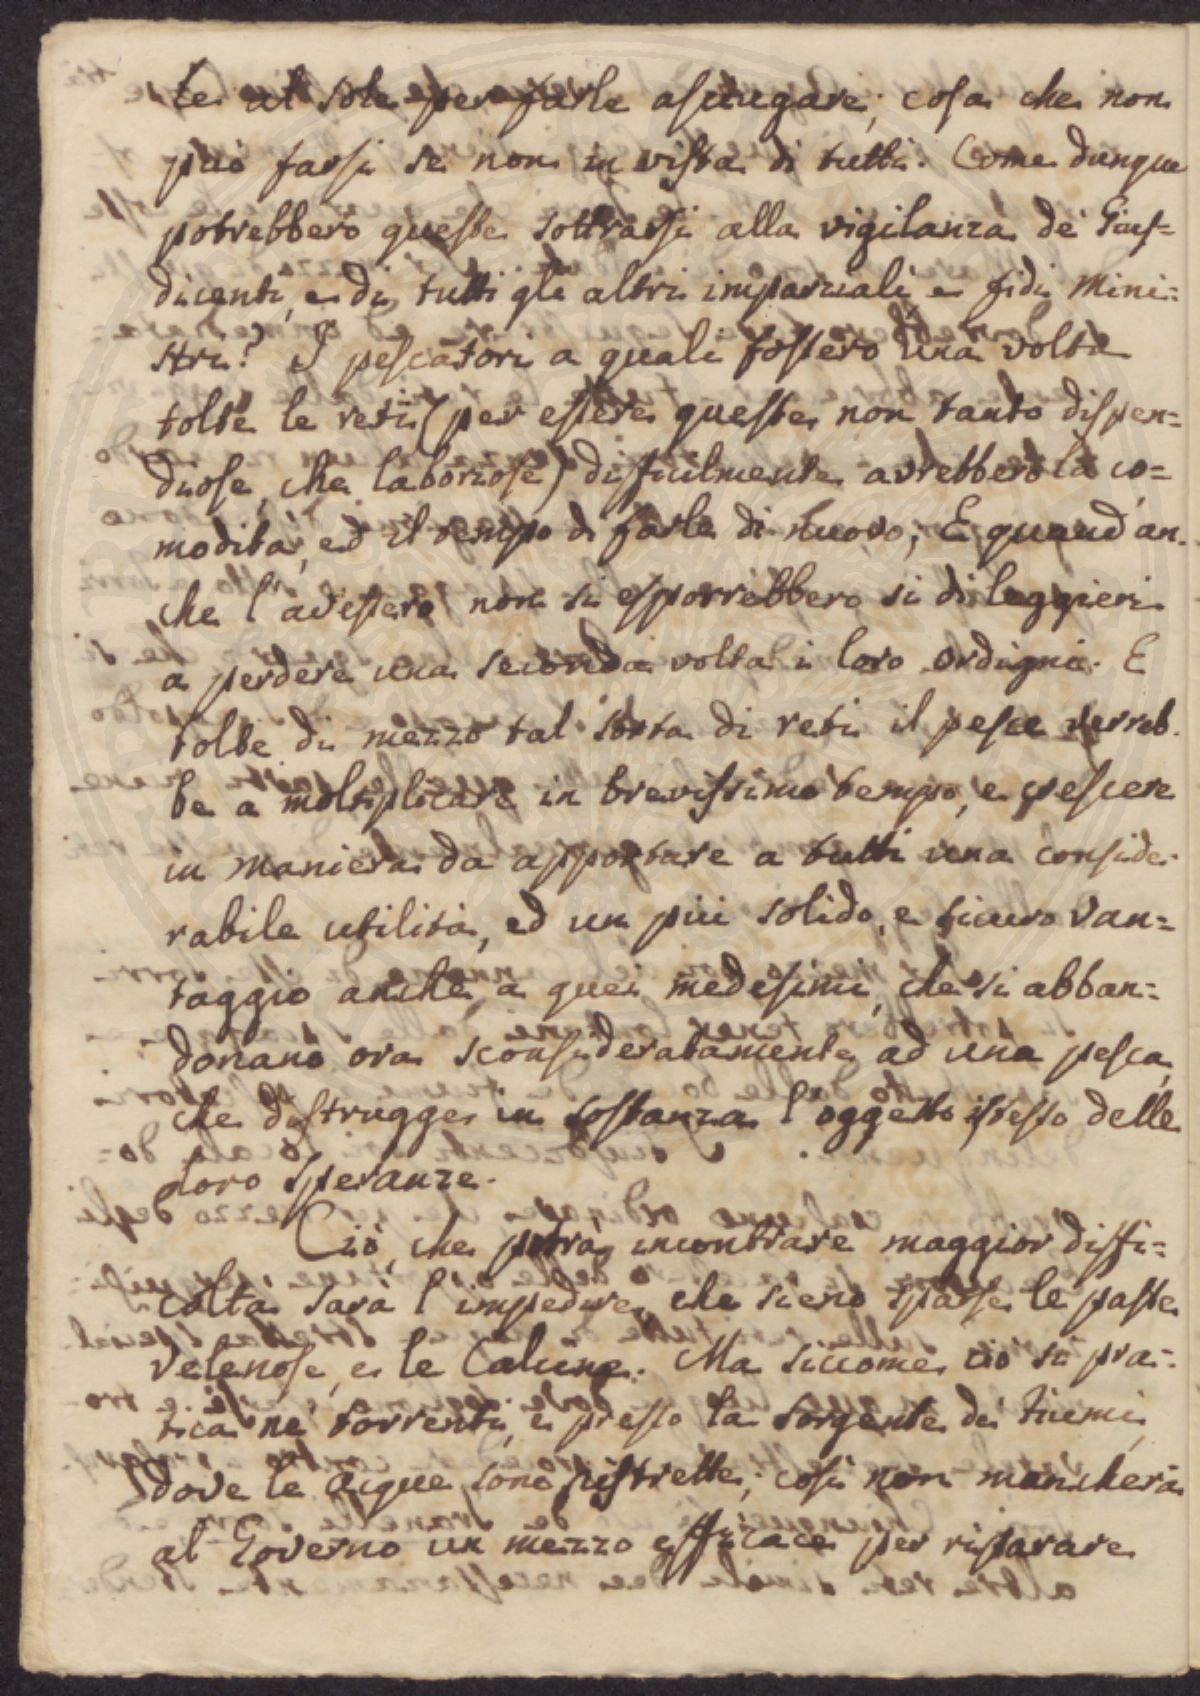 te al sole per farle asciugare; cosa che non
può farsi se non in vista di tutti. Come dunque
potrebbero queste sottrarsi alla vigilanza de' Gius=
dicenti, e di tutti gli altri imparziali e fidi Mini=
stri? I pescatori a quali fossero una volta
tolte le reti (per essere queste non tanto dispen=
diose, che laboriose) difficilmente avrebbero la co=
modità, ed il tempo di farle di nuovo; E quand'an=
che l'avessero non si esporrebbero si di leggieri
a perdere una seconda volta i loro ordigni. E
tolte di mezzo tal sorta di reti il pesce verreb=
be a moltiplicare in brevissimo tempo, e crescere
in maniera da apportare a tutti una conside=
rabile utilità, ed un più solido, e sicuro van=
taggio anche a quei medesimi, che si abban=
donano ora sconsideratamente ad una pesca,
che distrugge in sostanza l'oggetto istesso delle
loro speranze.
Ciò, che potrà incontrare maggior diffi=
coltà sarà l'impedire, che sieno sparse le paste
velenose, e le Calcine. Ma siccome ciò si pra=
tica ne' torrenti, e presso la sorgente dei fiumi,
dove le acque sono ristrette; così non mancherà
al Governo un mezzo efficace per riparare